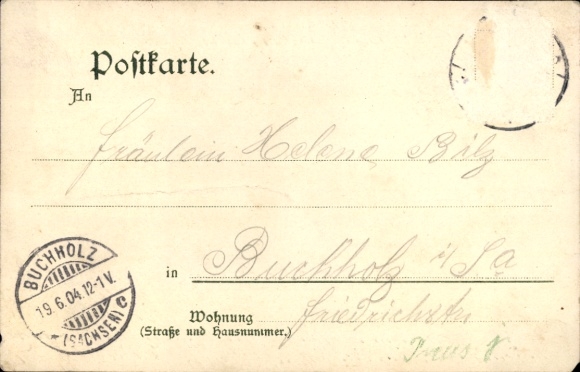 Postkarte.
An
Fräulein Helene Bälz
in Buchholz i/Sa
Wohnung Friedrichstr
(Straße und Hausnummer.)
BUCHHOLZ
19.6.04.12-1V.
(SACHSEN) c